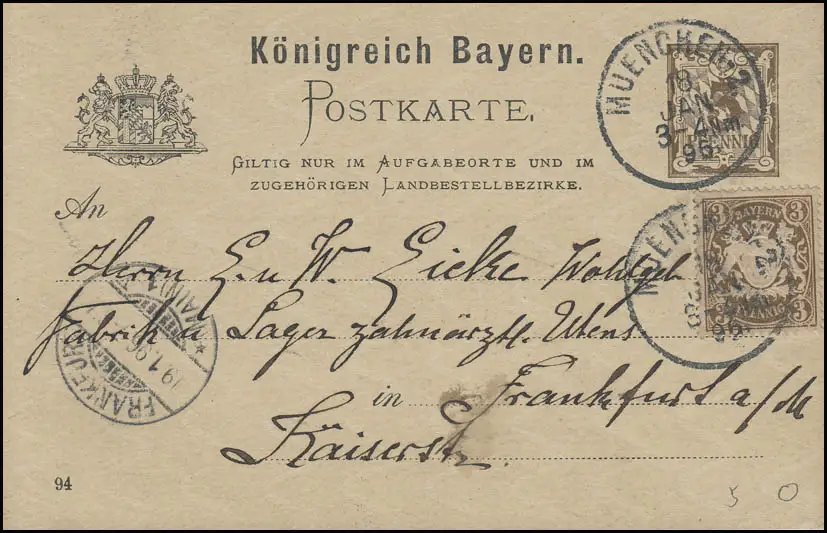 Königreich Bayern.
POSTKARTE.
GILTIG NUR IM AUFGABEORTE UND IM
ZUGEHÖRIGEN LANDBESTELLBEZIRKE.
MUENCHEN 2
18
JAN.
3-4 Nm.
96
PFENNIG
BAYERN
3 3
PFENNIG
MUENCH
96
An
Herrn E. u W. Eicke Wohlgeb
Fabrik u Lager zahnärztl. Utens.
in Frankfurt a/M
Kaiserst.
FRANKFUR
(MAIN) 1
19.1.96
94
5 0